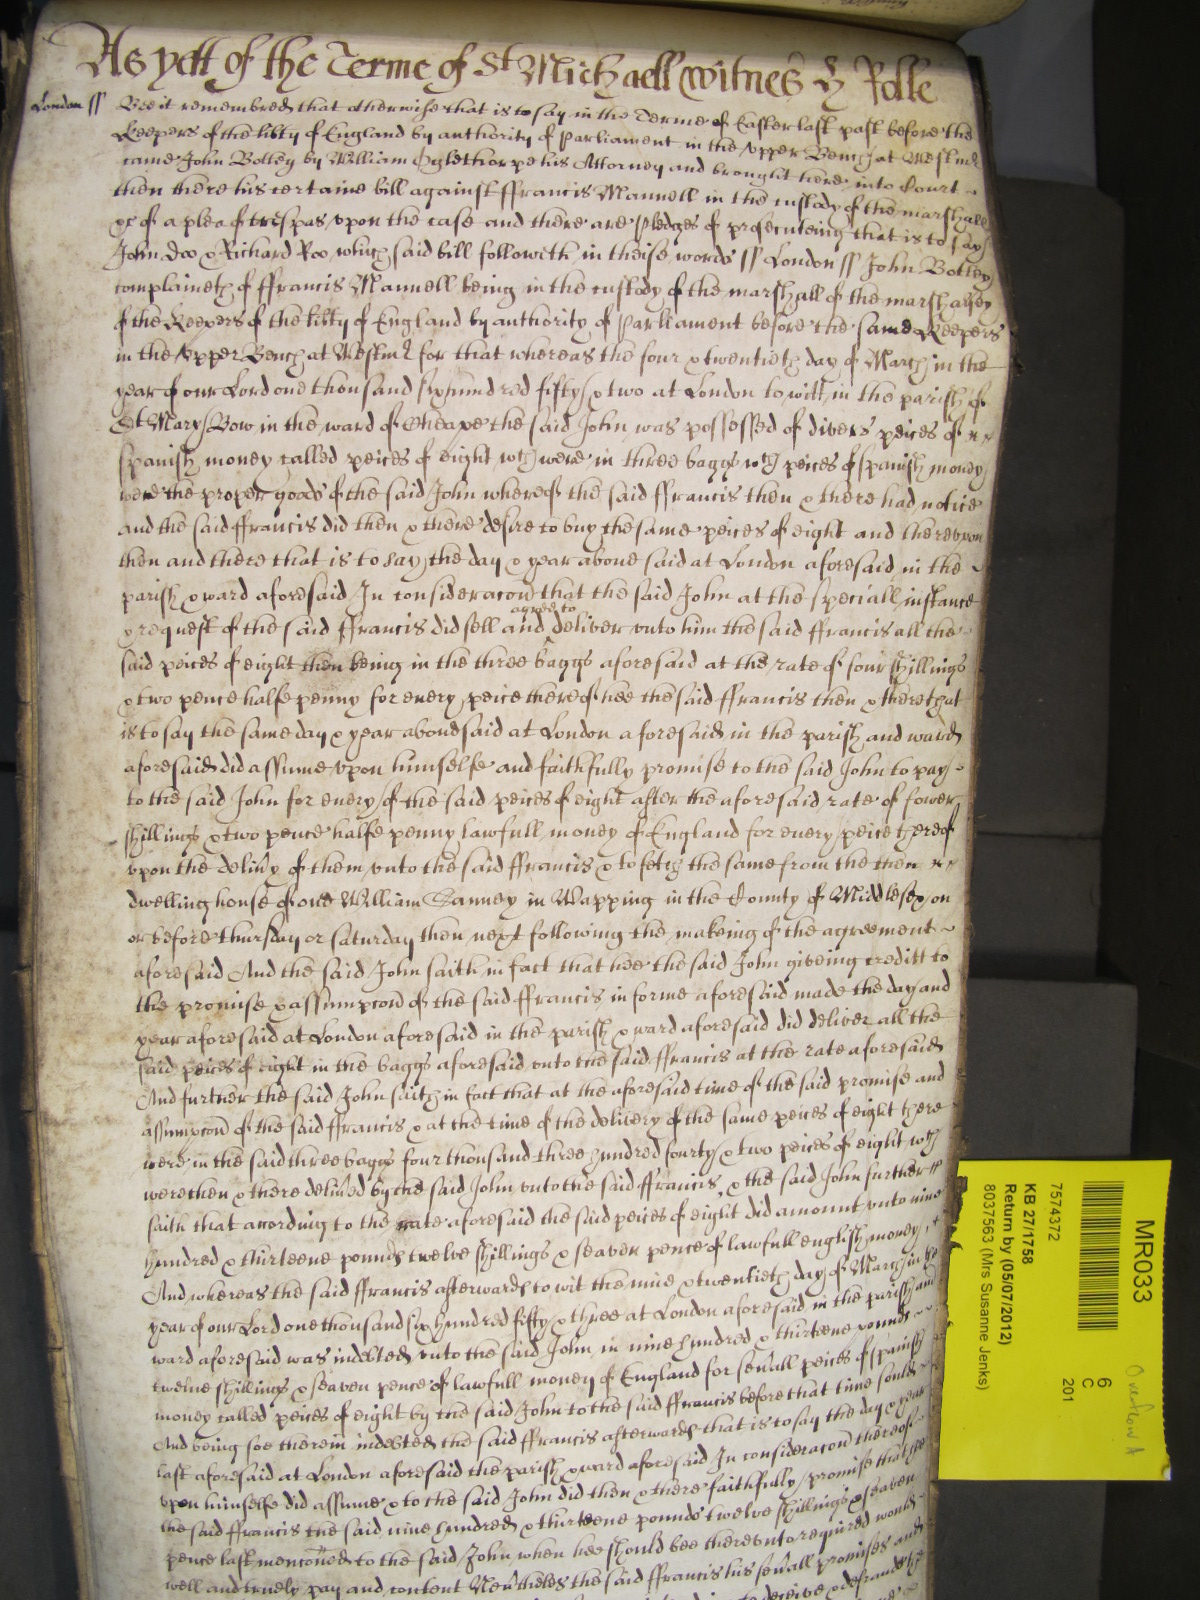 As yett of the Terme of St Michaell witnes By Rolle
London ss Bee it remembred that otherwise that is to say in the Terme of Easter last past before the
Keepers of the libty of England by authority of Parliament in the Upper Bench at Westmr
came John Bottey by William Oglethorpe his Attorney and brought here into Court
then there his certaine bill against ffrancis Mannell in the custody of the marshall
&c of a plea of trespas upon the case and there are pledges of prosecuteing that is to say
John Doo & Richard Roo which said bill followeth in theise words ss London ss John Bottey
complaineth of ffrancis Mannell being in the custody of the marshall of the marshalsey
of the Keepers of the libty of England by authority of Parliament before the same Keepers
in the Upper Bench at Westmr for that whereas the four & twentieth day of March in the
year of our Lord one thousand six hundred fifty & two at London to witt in the parish of
St Mary Bow in the ward of Cheape the said John was possessed of divers peices of
spanish money called peices of eight wch were in three baggs wch peices of spanish money
were the proper goods of the said John whereof the said ffrancis then & there had notice
and the said ffrancis did then & there desire to buy the same peices of eight and thereupon
then and there that is to say the day & year above said at London aforesaid in the
parish & ward aforesaid In consideracon that the said John at the speciall instance
& request of the said ffrancis did sell and agree to deliver unto him the said ffrancis all the
said peices of eight then being in the three baggs aforesaid at the rate of four shillings
& two pence halfe penny for every peice thereof hee the said ffrancis then & there that
is to say the same day & year abovesaid at London aforesaid in the parish and ward
aforesaid did assume upon himselfe and faithfully promise to the said John to pay
to the said John for every of the said peices of eight after the aforesaid rate of fower
shillings & two pence halfe penny lawfull money of England for every peice thereof
upon the delivy of them unto the said ffrancis & to fetch the same from the then
dwelling house of one William Sanney in Wapping in the County of Middlesex on
or before thursday or saturday then next following the makeing of the agreement
aforesaid And the said John saith in fact that hee the said John giveing creditt to
the promise & assumpcon of the said ffrancis in forme aforesaid made the day and
year aforesaid at London aforesaid in the parish & ward aforesaid did deliver all the
said peices of eight in the baggs aforesaid unto the said ffrancis at the rate aforesaid
And further the said John saith in fact that at the aforesaid time of the said promise and
assumpcon of the said ffrancis & at the time of the delivery of the same peices of eight there
were in the said three baggs four thousand three hundred fourty & two peices of eight wch
were then & there delived by the said John unto the said ffrancis, & the said John further
saith that according to the rate aforesaid the said peices of eight did amount unto nine
hundred & thirteene pounds twelve shillings & seaven pence of lawfull english money
And whereas the said ffrancis afterwards to wit the nine & twentieth day of March in the
year of our Lord one thousand six hundred fifty & three at London aforesaid in the parish and
ward aforesaid was indebted unto the said John in nine hundred & thirteene pounds
twelve shillings & seaven pence of lawfull money of England for sevall peices of spanish
money called peices of eight by the said John to the said ffrancis before that time sould
And being soe therein indebted the said ffrancis afterwards that is to say the day & year
last aforesaid at London aforesaid the parish & ward aforesaid In consideracon thereof
upon himselfe did assume & to the said John did then & there faithfully promise that hee
the said ffrancis the said nine hundred & thirteene pounds twelve shillings & seaven
pence last menconed to the said John when hee should bee thereunto required would
well and truely pay and content Nevtheles the said ffrancis his sevall promises and
to deceive & defraude the
MR033
6
C
201
7574372
KB 27/1758
Return by (05/07/2012)
8037563 (Mrs Susanne Jenks)
Overflow A